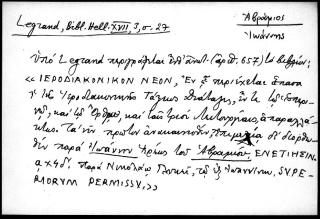 Legrand, Bibl. Hell. XVII, 3, σ. 27
Ἀβράμιος
Ἰωάννης
Ὑπὸ Legrand περιγράφεται (ἀρ. 657) τὸ βιβλίον:
«ΙΕΡΟΔΙΑΚΟΝΙΚΟΝ ΝΕΟΝ, Ἐν ᾧ περιέχεται ἅπασα
ἡ τῆς Ἱεροδιακονικῆς Τάξεως διάταξις, ἔν τε τῷ Ἑσπερι-
νῷ, καὶ τῷ Ὄρθρῳ, καὶ ταῖς τρισὶ Λειτουργίαις, ἀπαραλλά-
κτως. Τὰ νῦν πρῶτον ἐπιμελείᾳ διορθω-
θὲν παρὰ Ἰωάννου Ἱερέως τοῦ Ἀβραμίου. ΕΝΕΤΙΗΣΙΝ
αχϟδ΄. παρὰ Νικολάῳ Γλυκεῖ, τῷ ἐξ Ἰωαννίνων. SUPE-
RIORUM PERMISSU,»